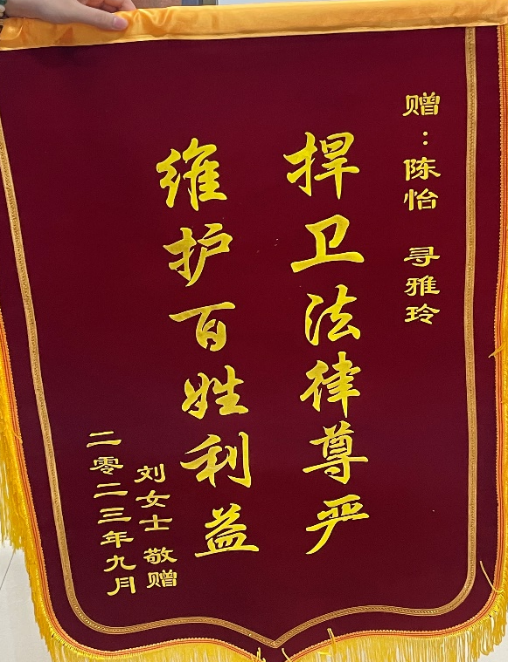 赠：陈怡 寻雅玲
捍卫法律尊严
维护百姓利益
刘女士 敬赠
二零二三年九月